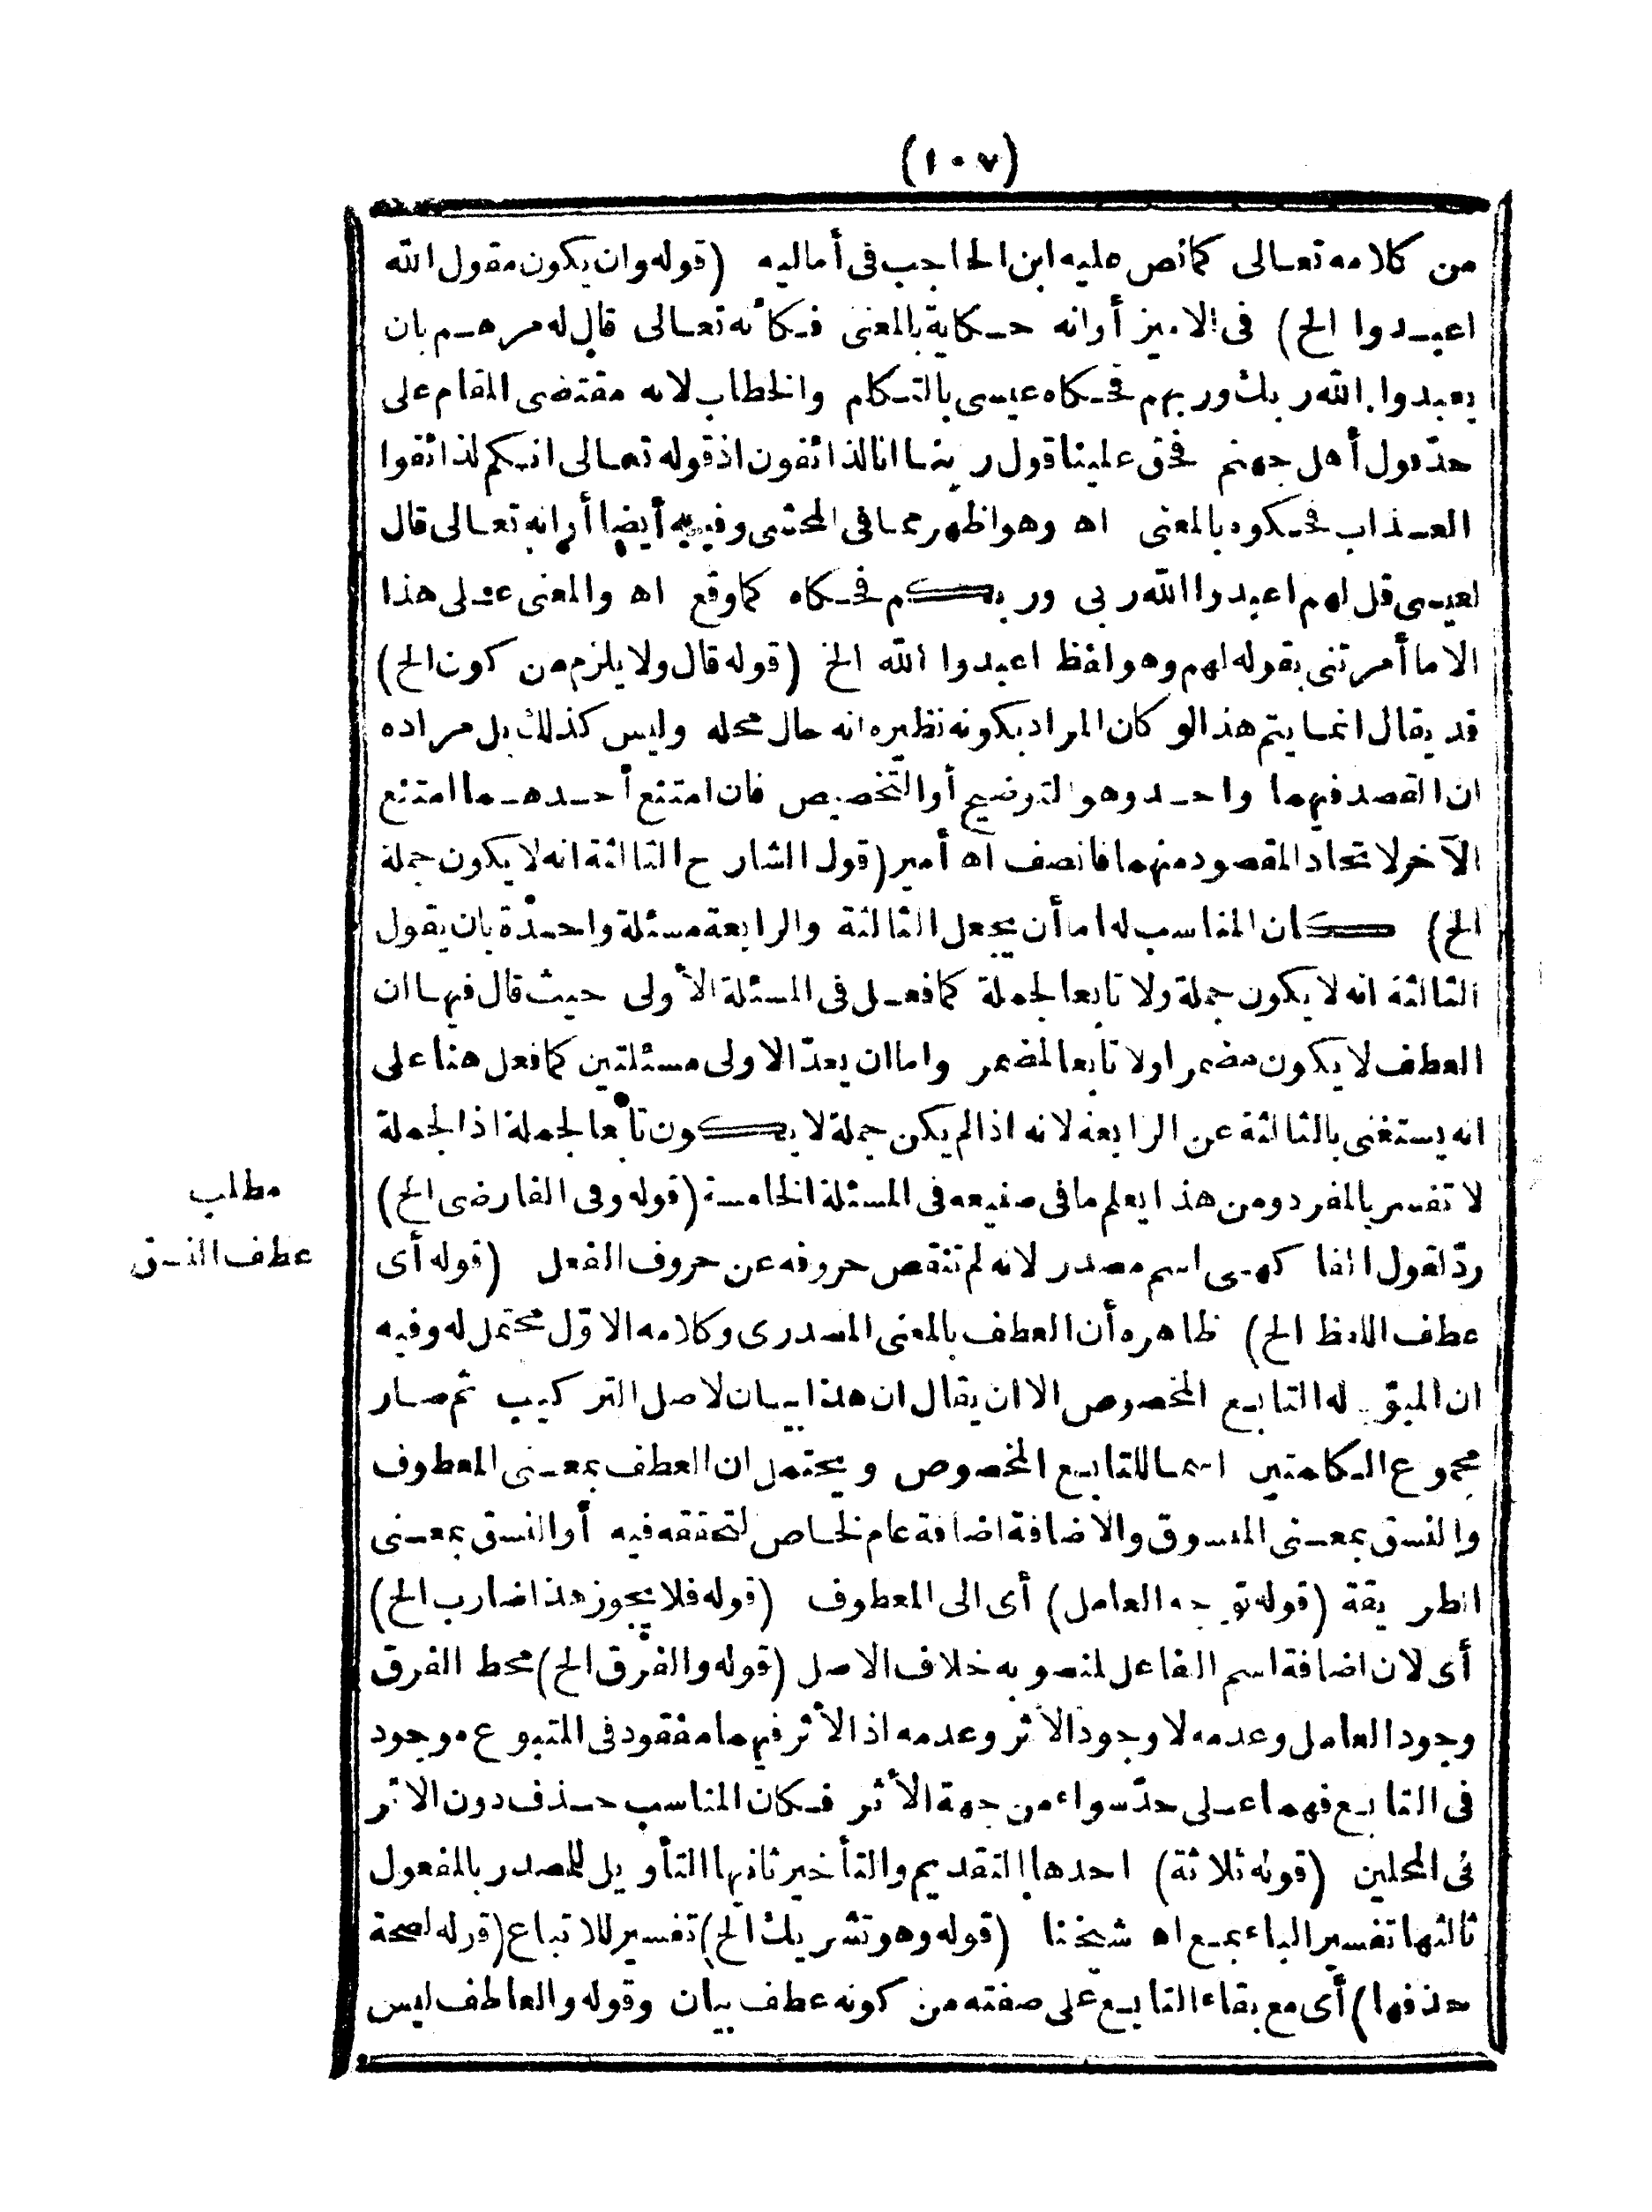 (١٠٧)
من كلامه تعالى كما نص عليه ابن الحاجب فى أماليه (قوله وان يكون مقول الله
اعبدوا الخ) فى الامير أو انه حكاية بالمعنى فكأنه تعالى قال له مرهم بان
يعبدوا الله ربك وربهم فحكاه عيسى بالتكلم والخطاب لانه مقتضى المقام على
حدّ قول أهل جهنم فحق علينا قول ربنا انا لذائقون اذ قوله تعالى انكم لذائقوا
العذاب فحكوه بالمعنى اه وهو اظهر مما فى المحشى وفيه أيضا أو انه تعالى قال
لعيسى قل لهم اعبدوا الله ربى وربكم فحكاه كما وقع اه والمعنى على هذا
الا ما أمرتنى بقوله لهم وهو لفظ اعبدوا الله الخ (قوله قال ولا يلزم من كون الخ)
قد يقال انما يتم هذا لو كان المراد بكونه نظيره انه حال محله وليس كذلك بل مراده
ان القصد فيهما واحد وهو التوضيح أو التخصيص فان امتنع أحدهما امتنع
الآخر لاتحاد المقصود منهما فانصف اه أمير (قول الشارح الثالثة انه لا يكون جملة
الخ) كان المناسب له اما أن يجعل الثالثة والرابعة مسئلة واحدة بان يقول
الثالثة انه لا يكون جملة ولا تابعا لجملة كما فعل فى المسئلة الأولى حيث قال فيها ان
العطف لا يكون مضمرا ولا تابعا لمضمر واما ان يعدّ الاولى مسئلتين كما فعل هنا على
انه يستغنى بالثالثة عن الرابعة لانه اذا لم يكن جملة لا يكون تابعا لجملة اذ الجملة
لا تفسر بالمفرد ومن هذا يعلم ما فى صنيعه فى المسئلة الخامسة (قوله وفى الفارضى الخ)
مطلب
عطف النسق
ردّ لقول الفاكهى اسم مصدر لانه لم تنقص حروفه عن حروف الفعل (قوله أى
عطف اللفظ الخ) ظاهره أن العطف بالمعنى المصدرى وكلامه الاوّل محتمل له وفيه
ان المبوّب له التابع المخصوص الا ان يقال ان هذا بيان لاصل التركيب ثم صار
مجموع الكلمتين اسما للتابع المخصوص ويحتمل ان العطف بمعنى المعطوف
والنسق بمعنى المنسوق والاضافة اضافة عام لخاص لتحققه فيه أو النسق بمعنى
الطريقة (قوله توجه العامل) أى الى المعطوف (قوله فلا يجوز هذا ضارب الخ)
أى لان اضافة اسم الفاعل لمنصوبه خلاف الاصل (قوله والفرق الخ) محط الفرق
وجود العامل وعدمه لا وجود الأثر وعدمه اذ الأثر فيهما مفقود فى المتبوع موجود
فى التابع فهما على حدّ سواء من جهة الأثر فكان المناسب حذف دون الاثر
فى المحلين (قوله ثلاثة) احدها التقديم والتأخير ثانيها التأويل للمصدر بالمفعول
ثالثها تفسير الباء بمع اه شيخنا (قوله وهو تشريك الخ) تفسير للاتباع (قوله لصحة
حذفها) أى مع بقاء التابع على صفته من كونه عطف بيان وقوله والعاطف ليس